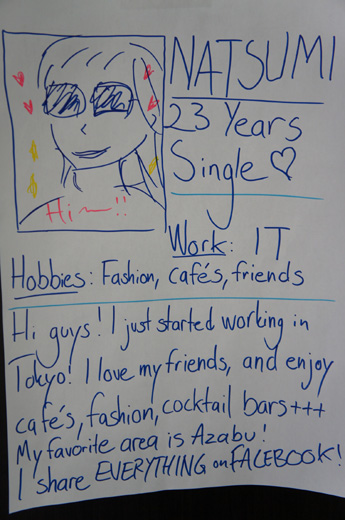 NATSUMI
23 Years
Single ♡
Hi~!!
Work: IT
Hobbies: Fashion, cafés, friends
Hi guys! I just started working in
Tokyo! I love my friends, and enjoy
café's, fashion, cocktail bars+++
My favorite area is Azabu!
I share EVERYTHING on FACEBOOK!